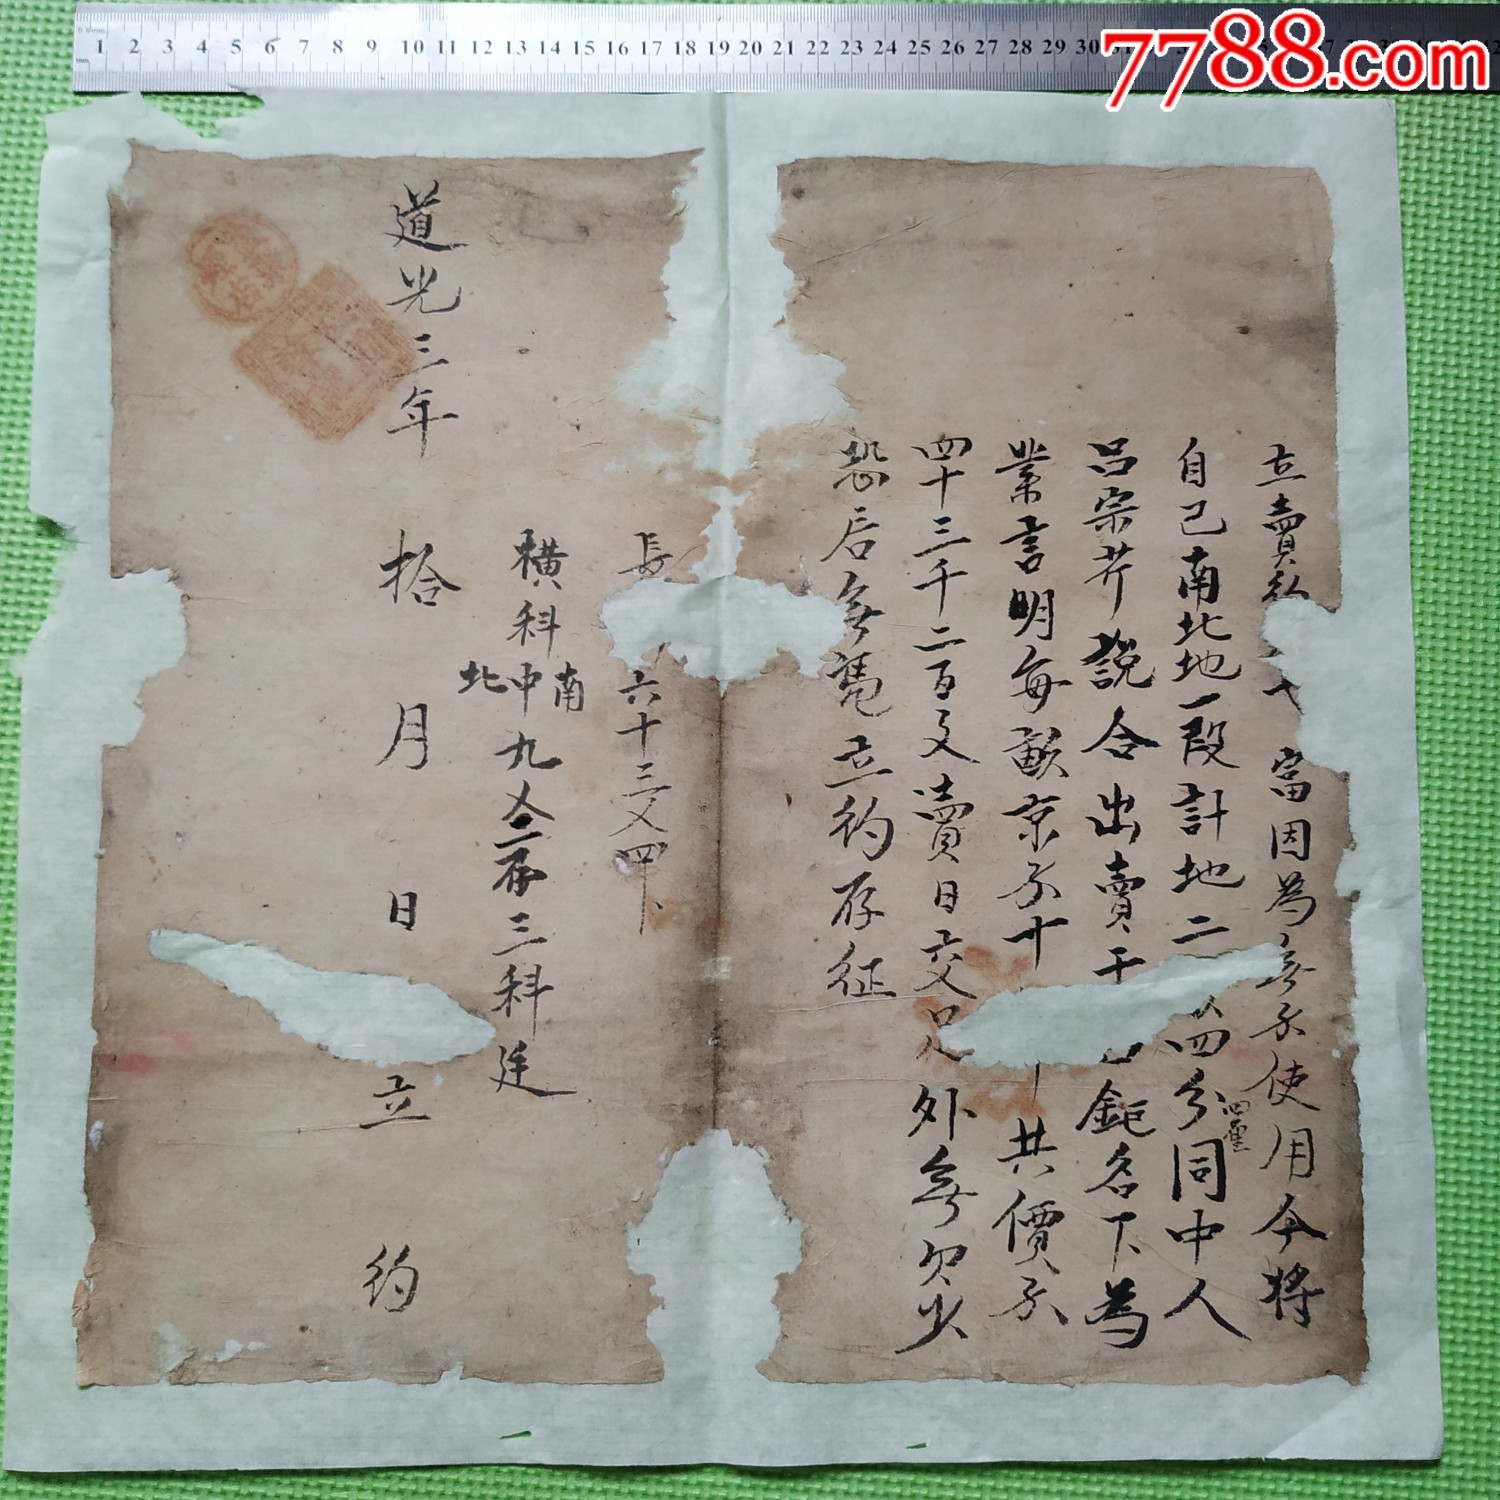 立賣約 富因為無錢使用今將
自己南北地一段計地二 四分四厘同中人
呂宗芥說合出賣于 鉅名下為
業言明每畝京錢十 共價錢
四十三千二百文賣日交足外無欠少
恐后無憑立約存征
長 六十三 四
橫科南中北九 三科廷
道光三年 拾月 日 立 約
1 2 3 4 5 6 7 8 9 10 11 12 13 14 15 16 17 18 19 20 21 22 23 24 25 26 27 28 29 30
7788.com